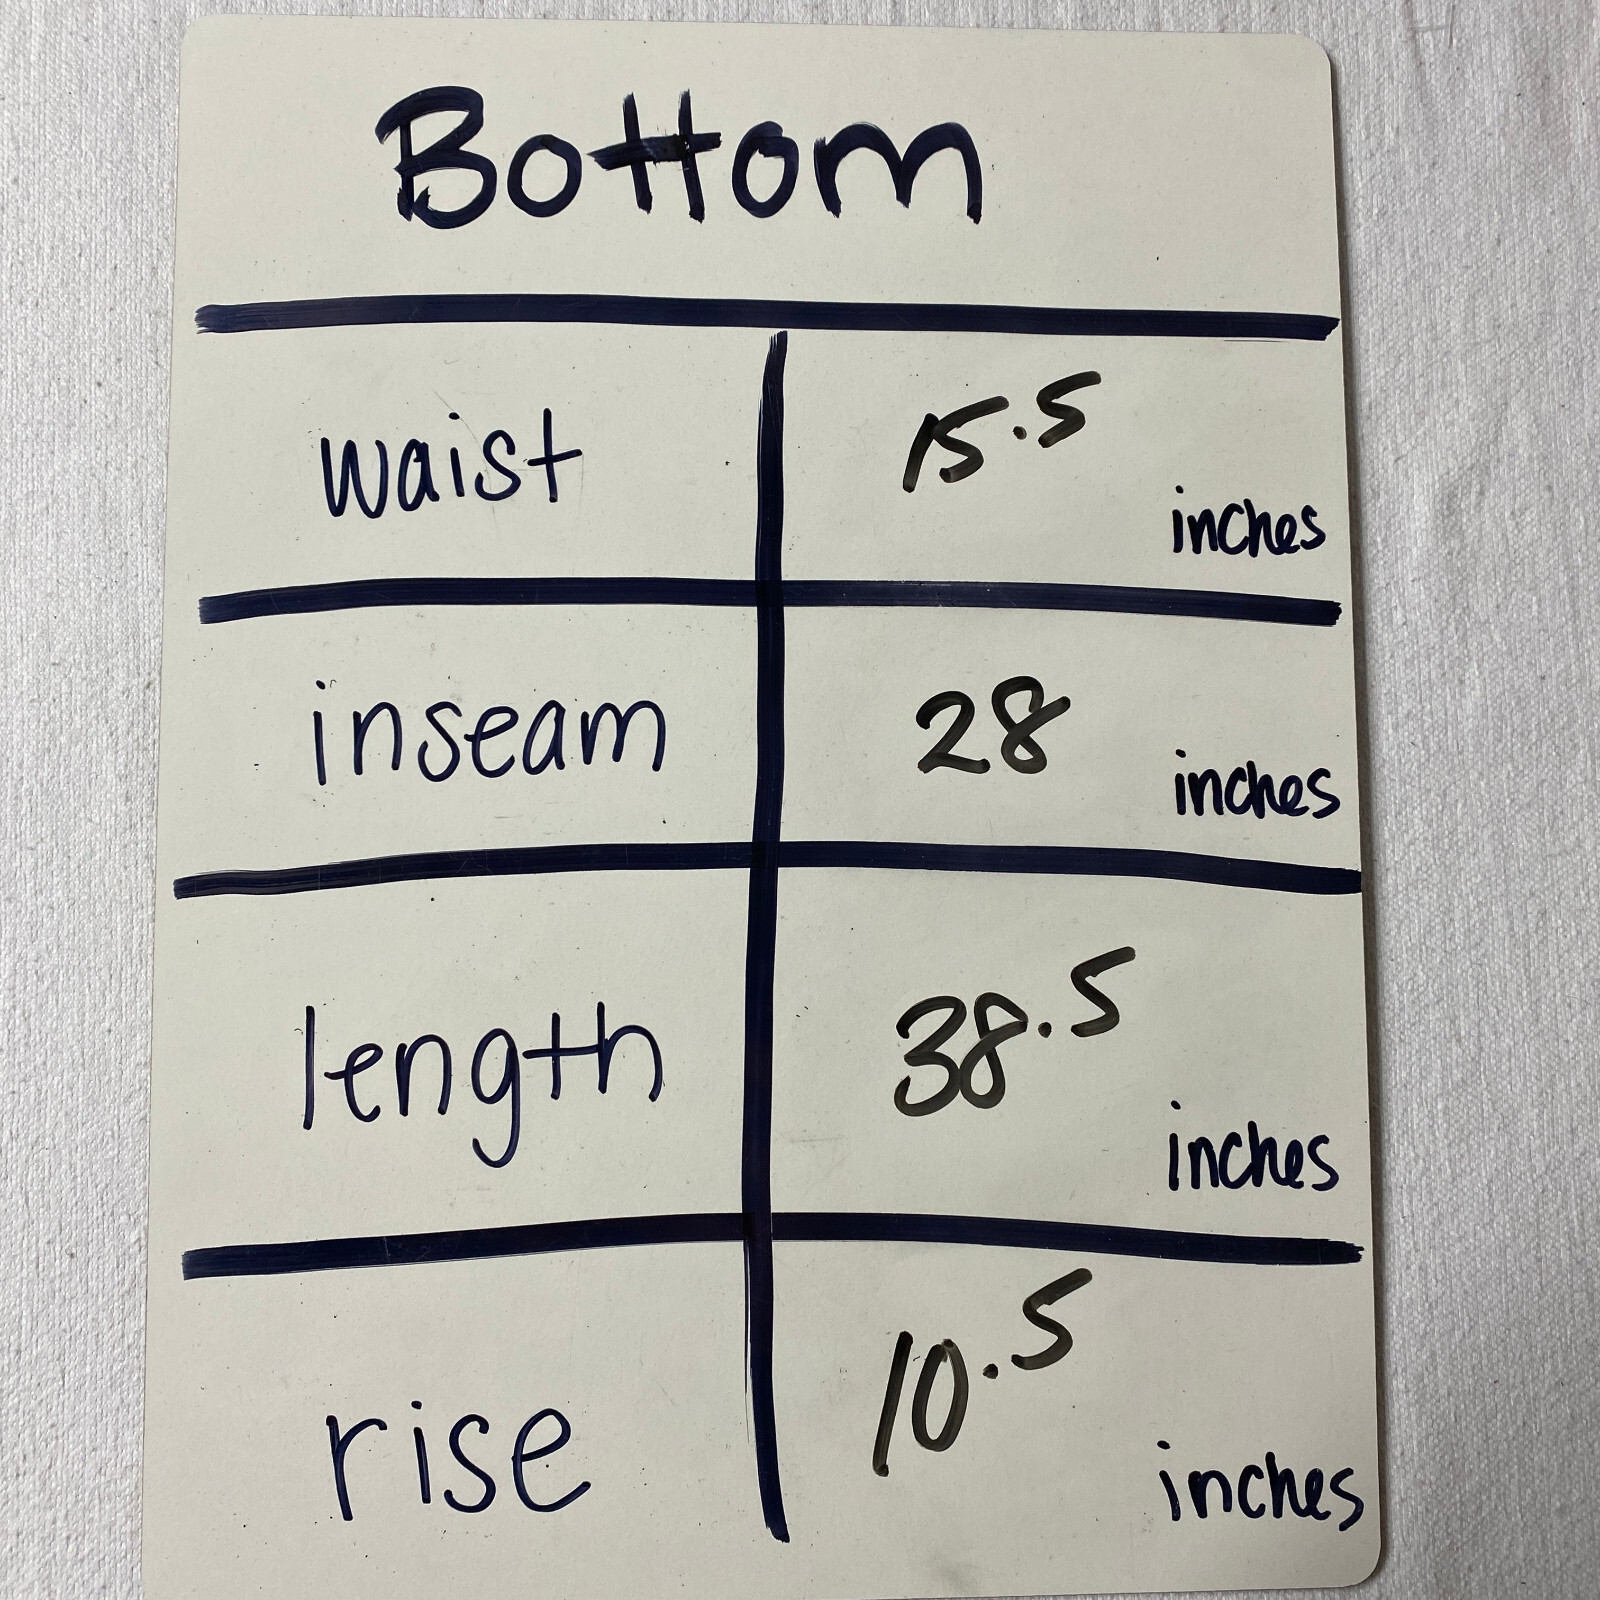 Bottom
waist 15.5 inches
inseam 28 inches
length 38.5 inches
rise 10.5 inches